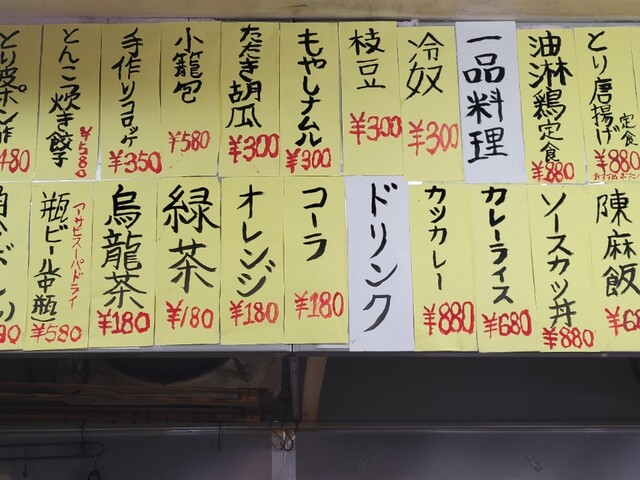 とり唐揚げ定食
¥880
油淋鶏定食
¥880
一品料理
冷奴
¥300
枝豆
¥300
もやしナムル
¥300
たたき胡瓜
¥300
小籠包
¥580
手作りコロッケ
¥350
とんこつ炊き餃子
¥580
とり皮ポン酢
480
陳麻飯
¥68
ソースカツ丼
¥880
カレーライス
¥680
カツカレー
¥880
ドリンク
コーラ
¥180
オレンジ
¥180
緑茶
¥180
烏龍茶
¥180
アサヒスーパードライ
瓶ビール(中瓶)
¥580